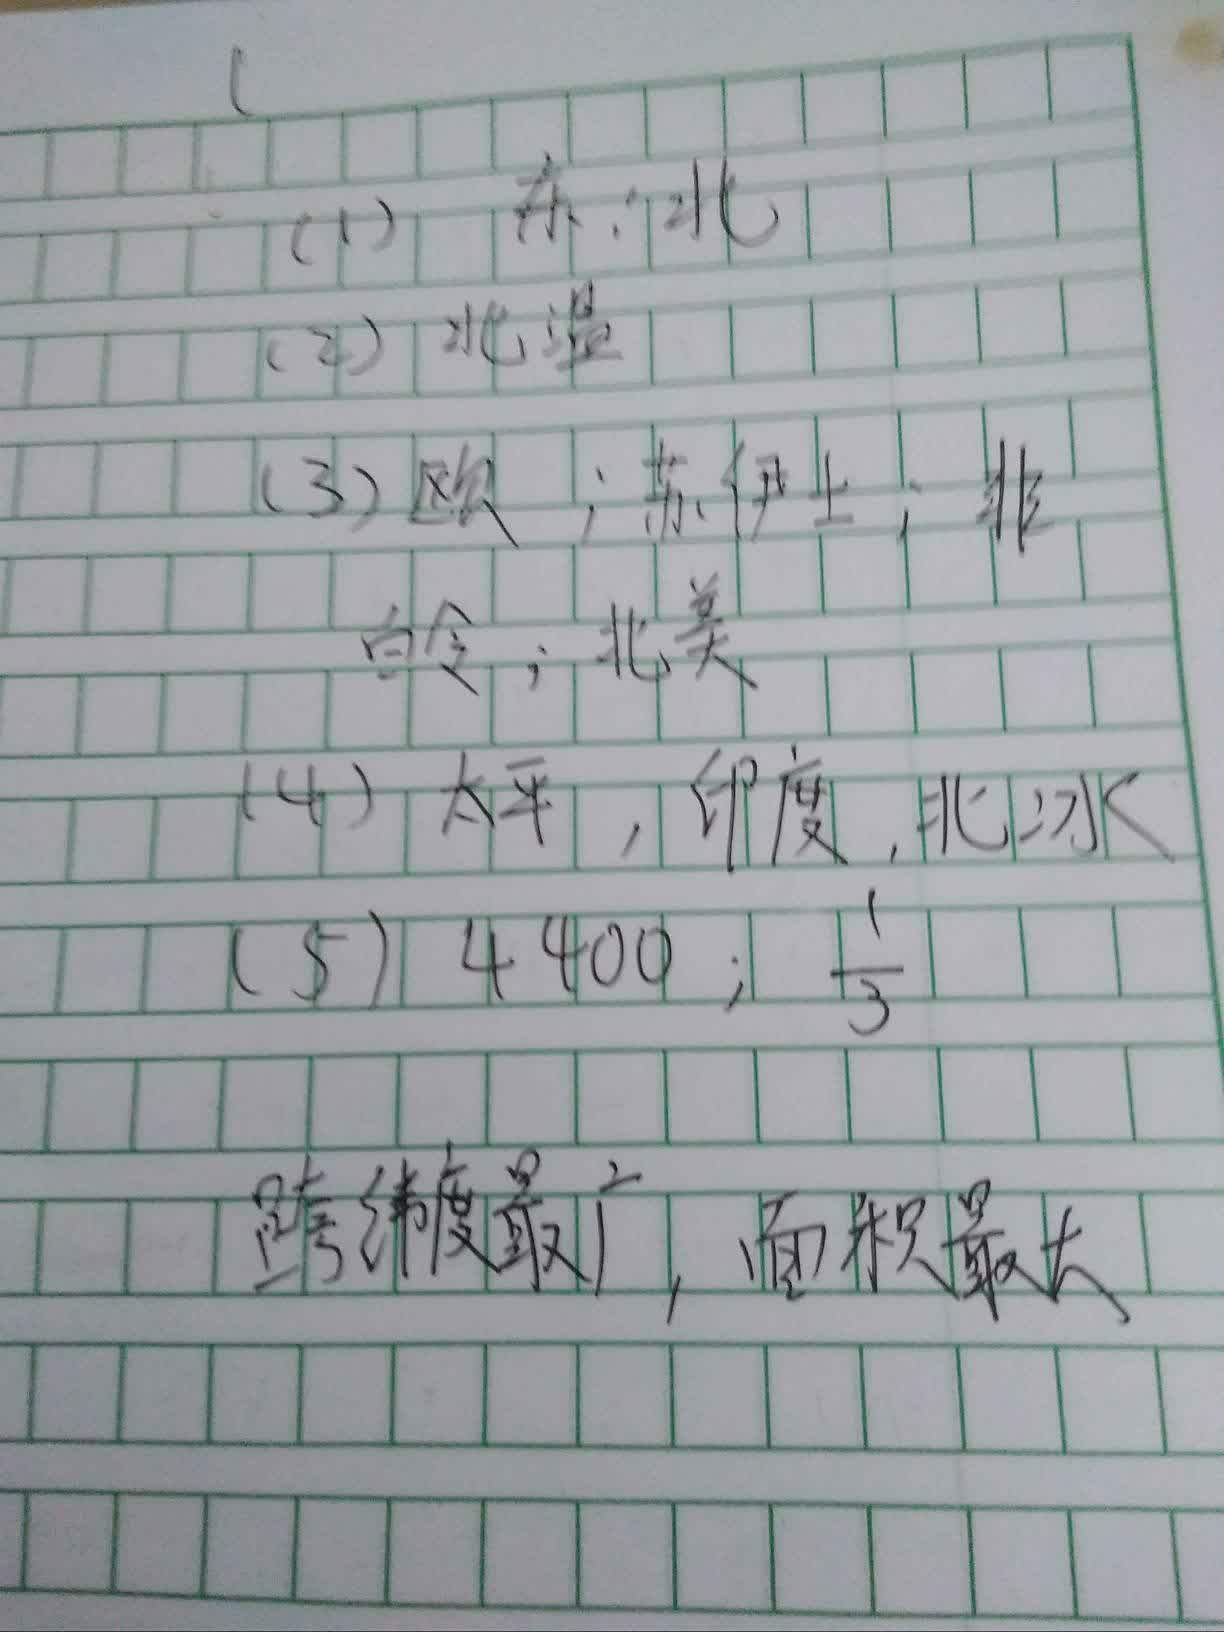 (1) 东;北
(2) 北温
(3) 欧;苏伊士;非
白令;北美
(4) 太平,印度,北冰
(5) 4400; 1/3
跨纬度最广,面积最大